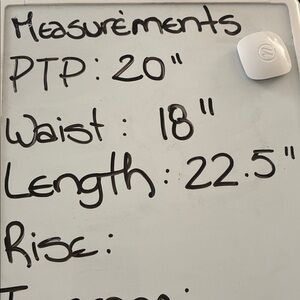 Measurements
PTP: 20"
Waist: 18"
Length: 22.5"
Rise: